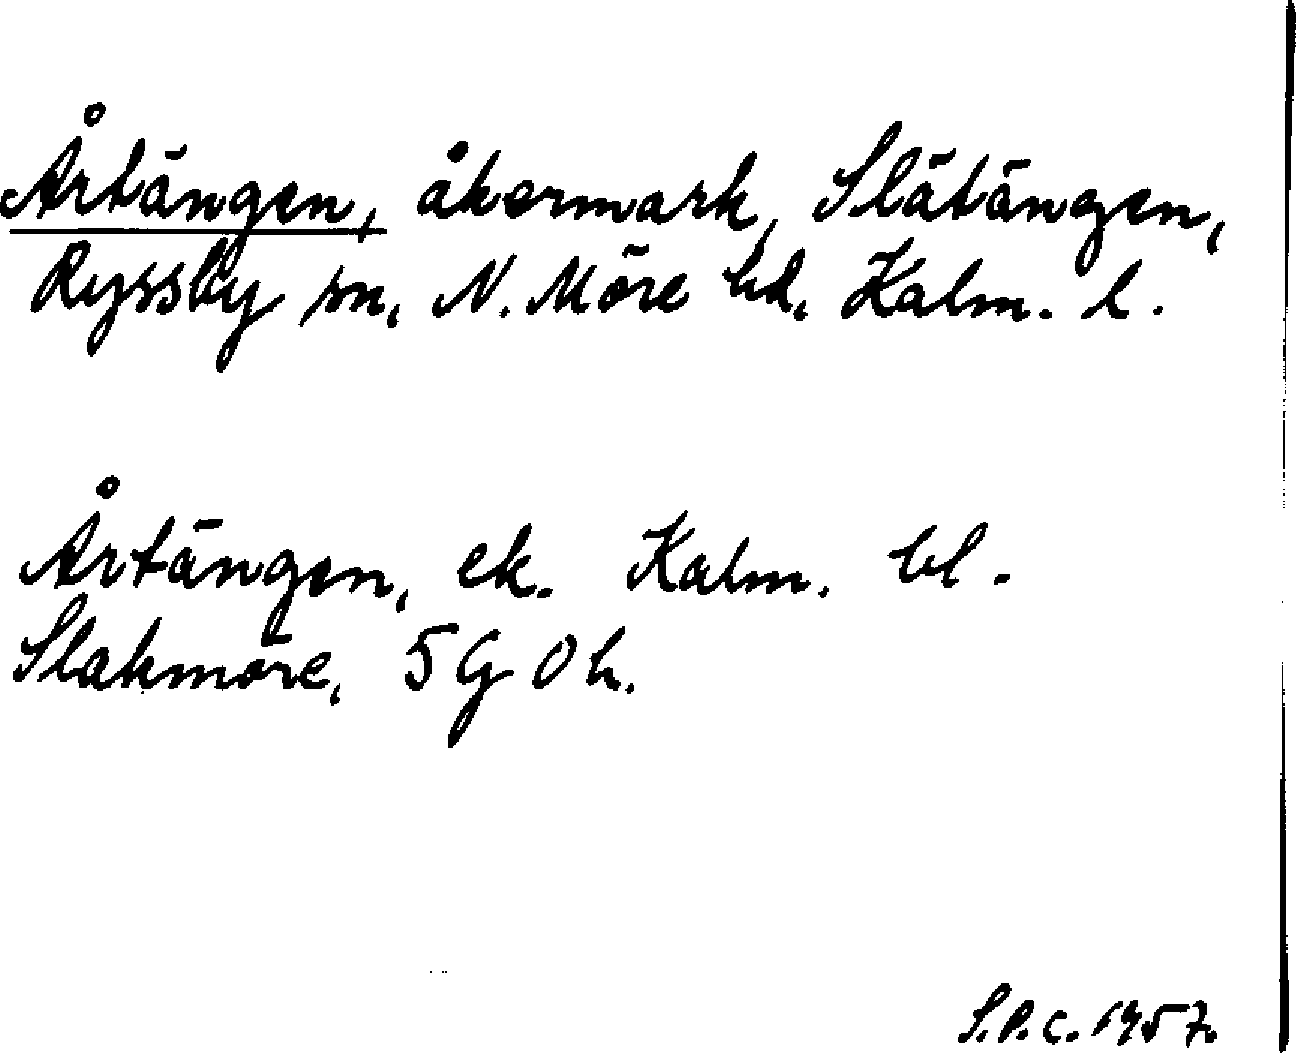 Årtängen, åkermark, Slätängen,
Ryssby sn, N. Möre hd, Kalm. l.
Årtängen, ek. Kalm. bl.
Slakmöre, 5 G 0 h.
S.P.C. 1957.